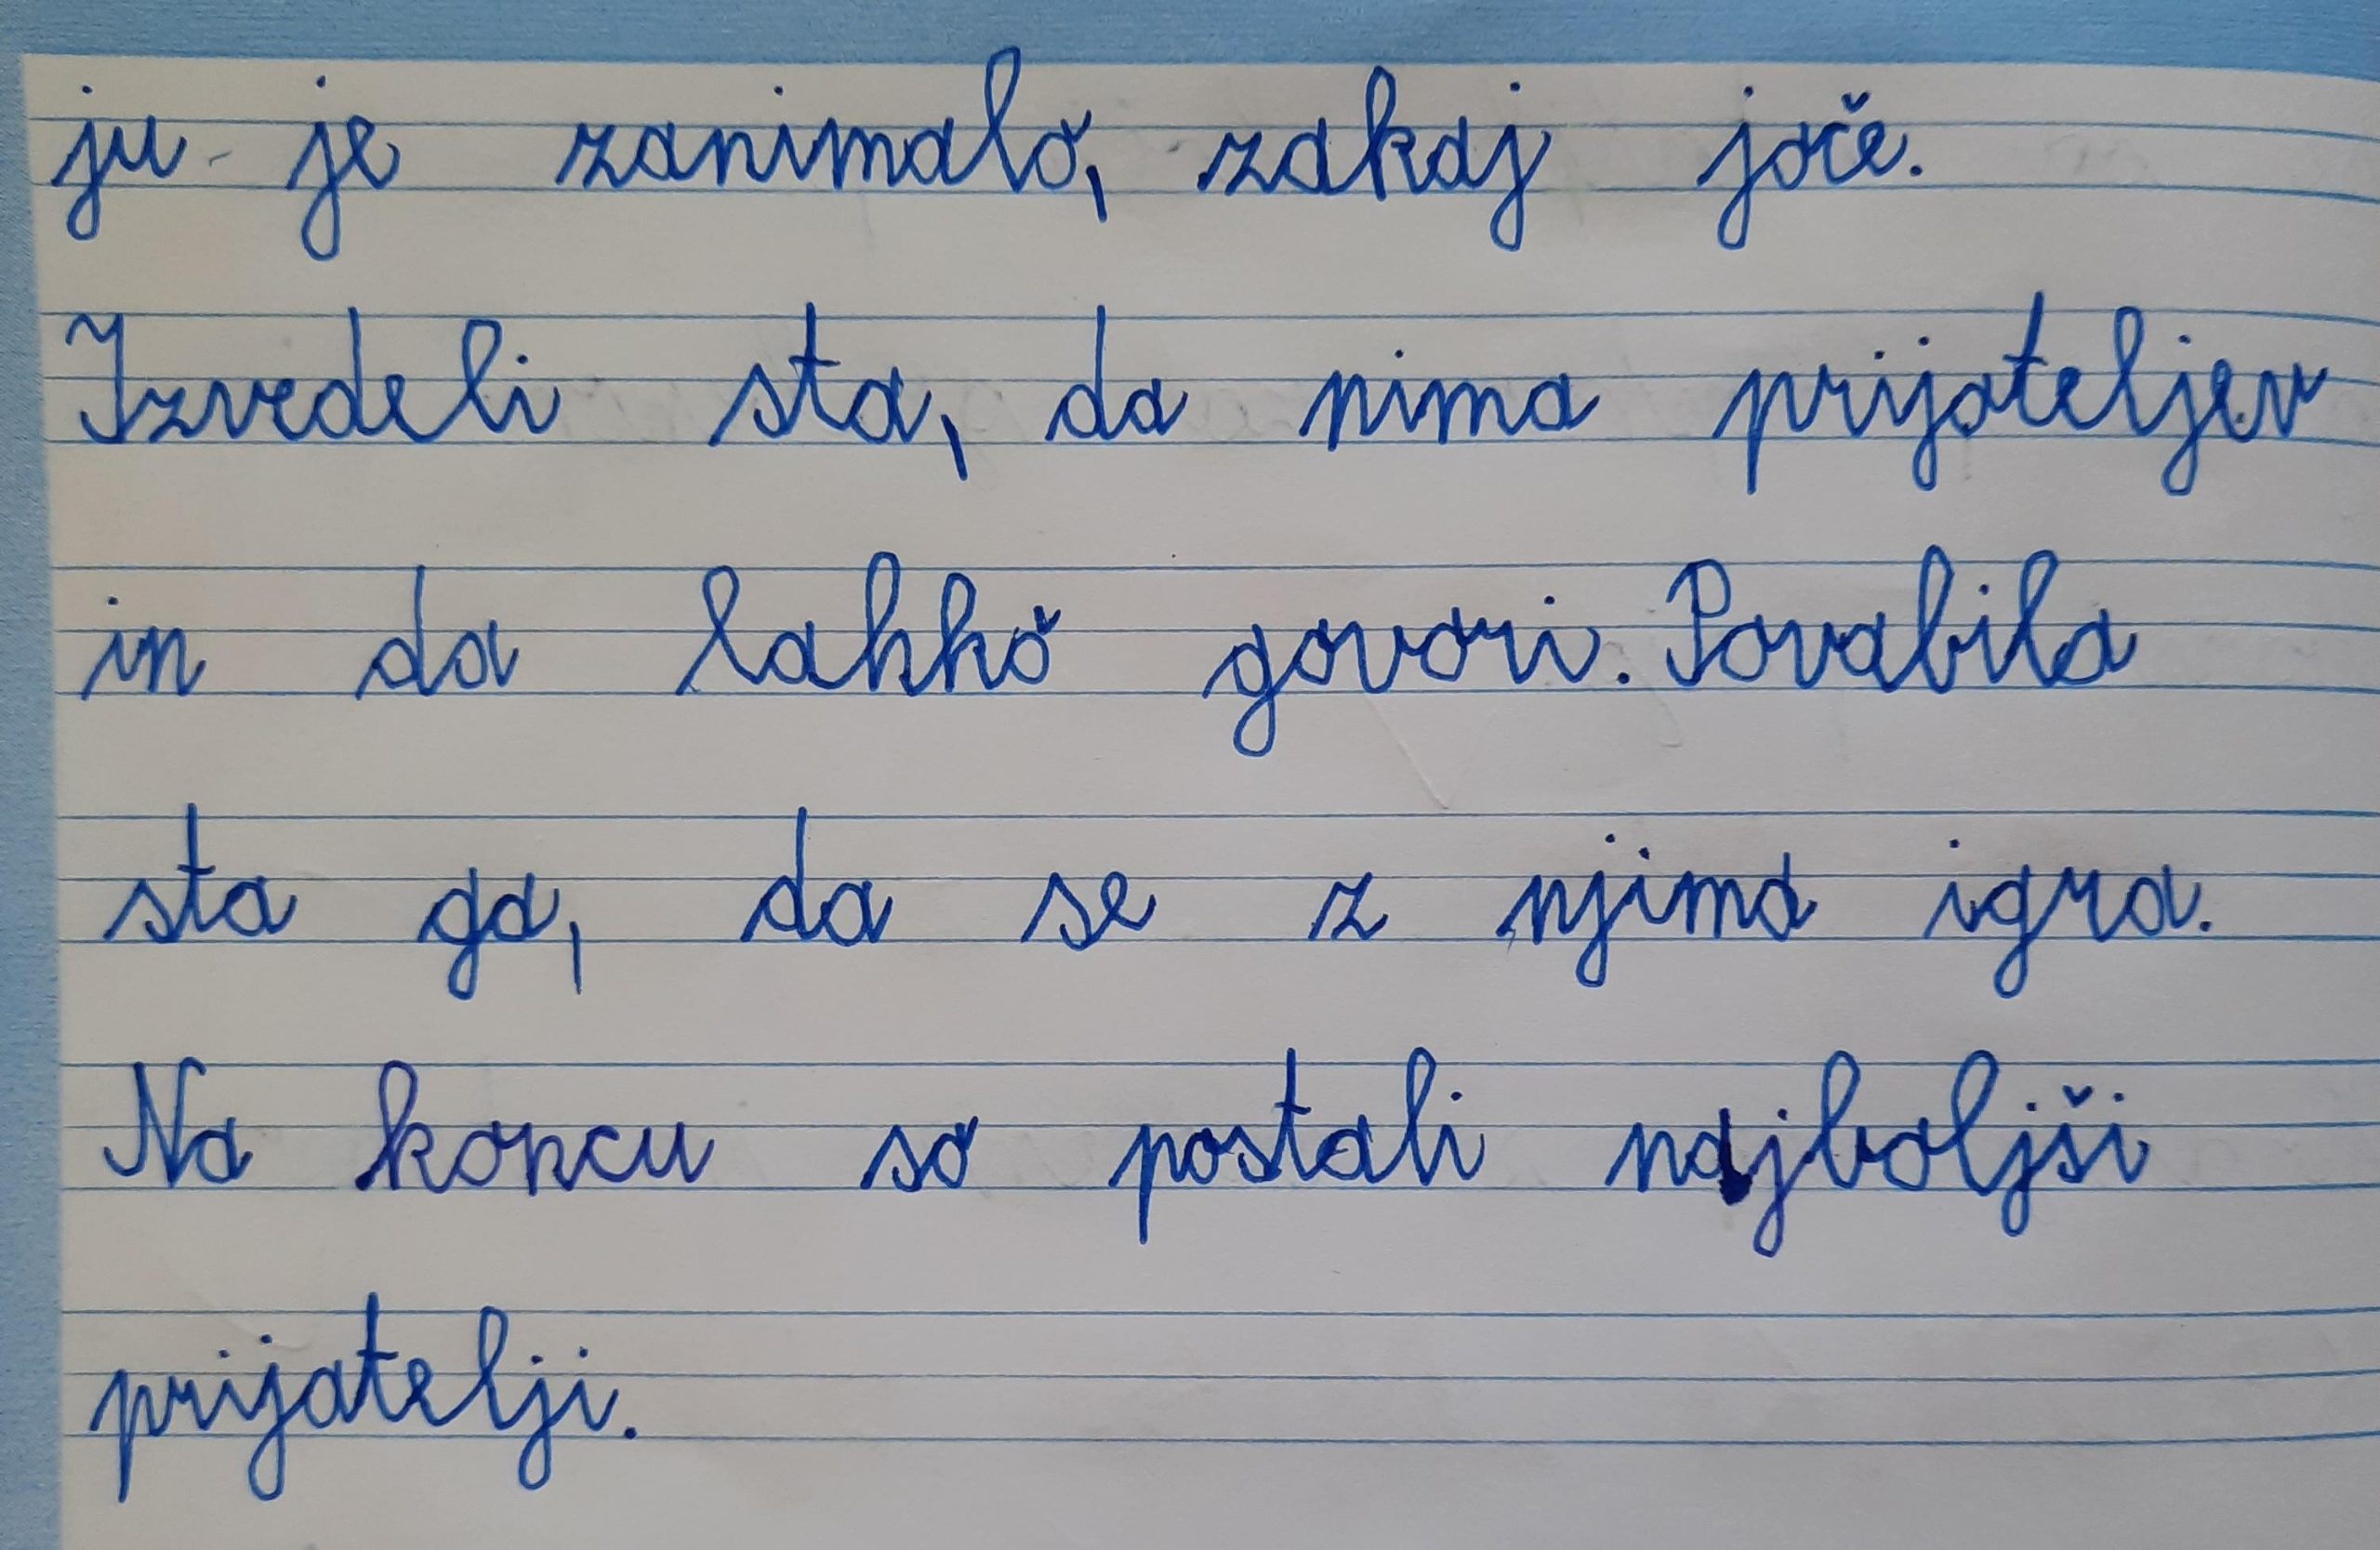 ju je zanimalo, zakaj joče.
Izvedeli sta, da nima prijateljev
in da lahko govori. Povabila
sta ga, da se z njima igra.
Na koncu so postali najboljši
prijatelji.